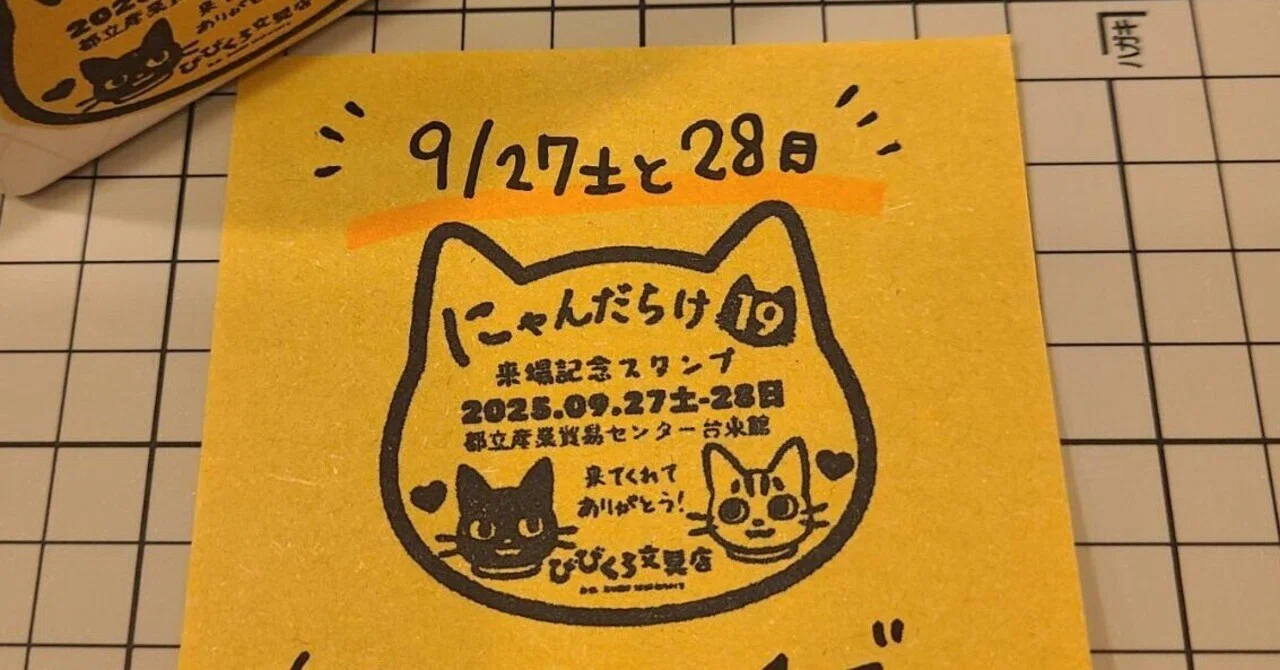 ハガキ
都立産業
来
ありがとう
びびくろ文具店
9/27土と28日
にゃんだらけ19
来場記念スタンプ
2025.09.27土-28日
都立産業貿易センター台東館
来てくれて
ありがとう!
びびくろ文具店